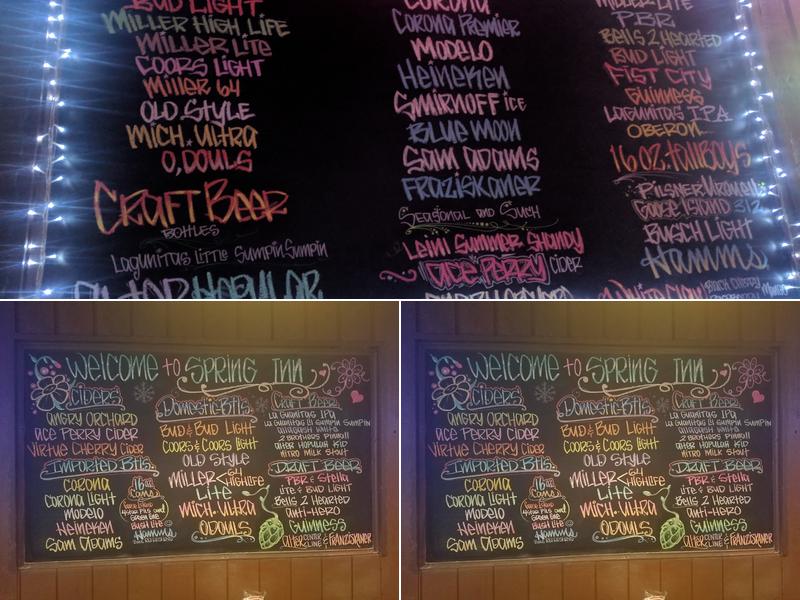 BUD LIGHT
MILLER HIGH LIFE
MILLER LITE
COORS LIGHT
MILLER 64
OLD STYLE
MICH. ULTRA
O'DOULS
CRAFT BEER
BOTTLES
LAGUNITAS LITTLE SUMPIN SUMPIN
CORONA
CORONA PREMIER
MODELO
HEINEKEN
SMIRNOFF ICE
BLUE MOON
SAM ADAMS
FRAZISKANER
SEASONAL AND SUCH
LEINI SUMMER SHANDY
ACE PERRY CIDER
MILLER LITE
PBR
BELLS 2 HEARTED
BUD LIGHT
FIST CITY
GUINNESS
LAGUNITAS IPA
OBERON
16 OZ. TALLBOYS
GOOSE ISLAND 312
BUSCH LIGHT
HAMMS
WELCOME TO SPRING INN
CIDERS
ANGRY ORCHARD
ACE PERRY CIDER
VIRTUE CHERRY CIDER
IMPORTED BTLS.
CORONA
CORONA LIGHT
MODELO
HEINEKEN
SAM ADAMS
DOMESTIC BTLS.
BUD & BUD LIGHT
COORS & COORS LIGHT
OLD STYLE
MILLER < 64 HIGHLIFE
LITE
MICH. ULTRA
ODOULS
16 oz.
CANS
HAMMS
CRAFT BEER
LAGUNITAS IPA
2 BROTHERS
NITRO MILK STOUT
DRAFT BEER
PBR & STELLA
LITE & BUD LIGHT
BELLS 2 HEARTED
ANTI-HERO
GUINNESS
ALTER CENTER LINE & FRANZISKANER
WELCOME TO SPRING INN
CIDERS
ANGRY ORCHARD
ACE PERRY CIDER
VIRTUE CHERRY CIDER
IMPORTED BTLS.
CORONA
CORONA LIGHT
MODELO
HEINEKEN
SAM ADAMS
DOMESTIC BTLS.
BUD & BUD LIGHT
COORS & COORS LIGHT
OLD STYLE
MILLER < 64 HIGHLIFE
LITE
MICH. ULTRA
ODOULS
16 oz.
CANS
HAMMS
CRAFT BEER
LAGUNITAS IPA
2 BROTHERS
NITRO MILK STOUT
DRAFT BEER
PBR & STELLA
LITE & BUD LIGHT
BELLS 2 HEARTED
ANTI-HERO
GUINNESS
ALTER CENTER LINE & FRANZISKANER